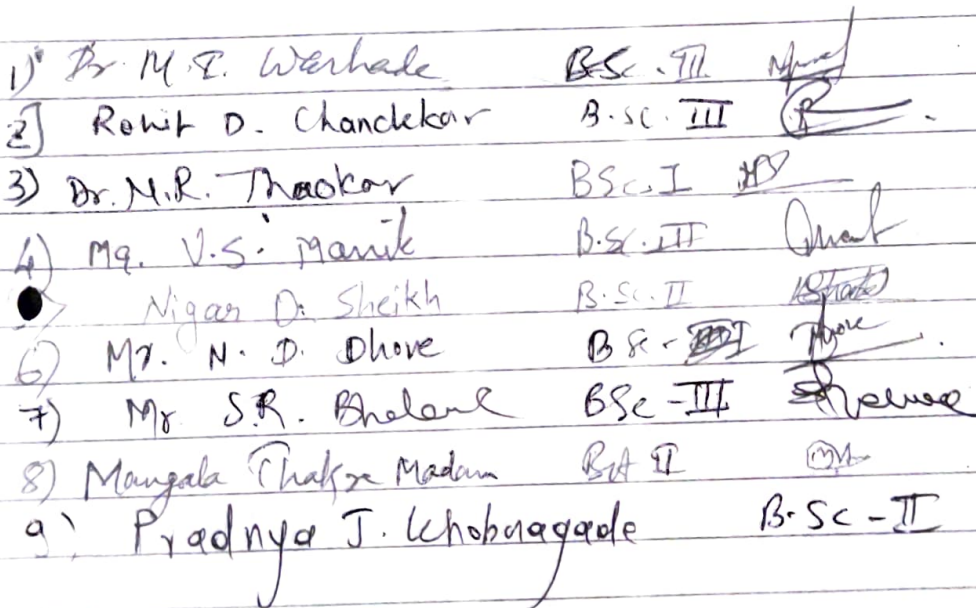 1) Dr. M. I. Warhade B.Sc. III
2] Rohit D. Chandekar B.SC. III
3) Dr. M.R. Thaokar BSc. I
4) Mq. V.S. Manik B.Sc. III
Nigar D. Sheikh B.Sc. II
6) Mr. N. D. Dhove B Sc - I
7) Mr S.R. BSc - III
8) Mangala Thakre Madam B.A II
9) Pradnya J. Khobragade B.SC - II